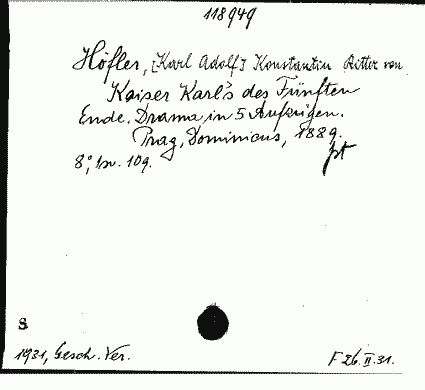 118949
Höfler, [Karl Adolf] Konstantin Ritter von
Kaiser Karl's des Fünften
Ende. Drama in 5 Aufzügen.
Prag, Dominicus, 1889.
8°, 109.
S
1931, Gesch. Ver.
F 26.II.31.